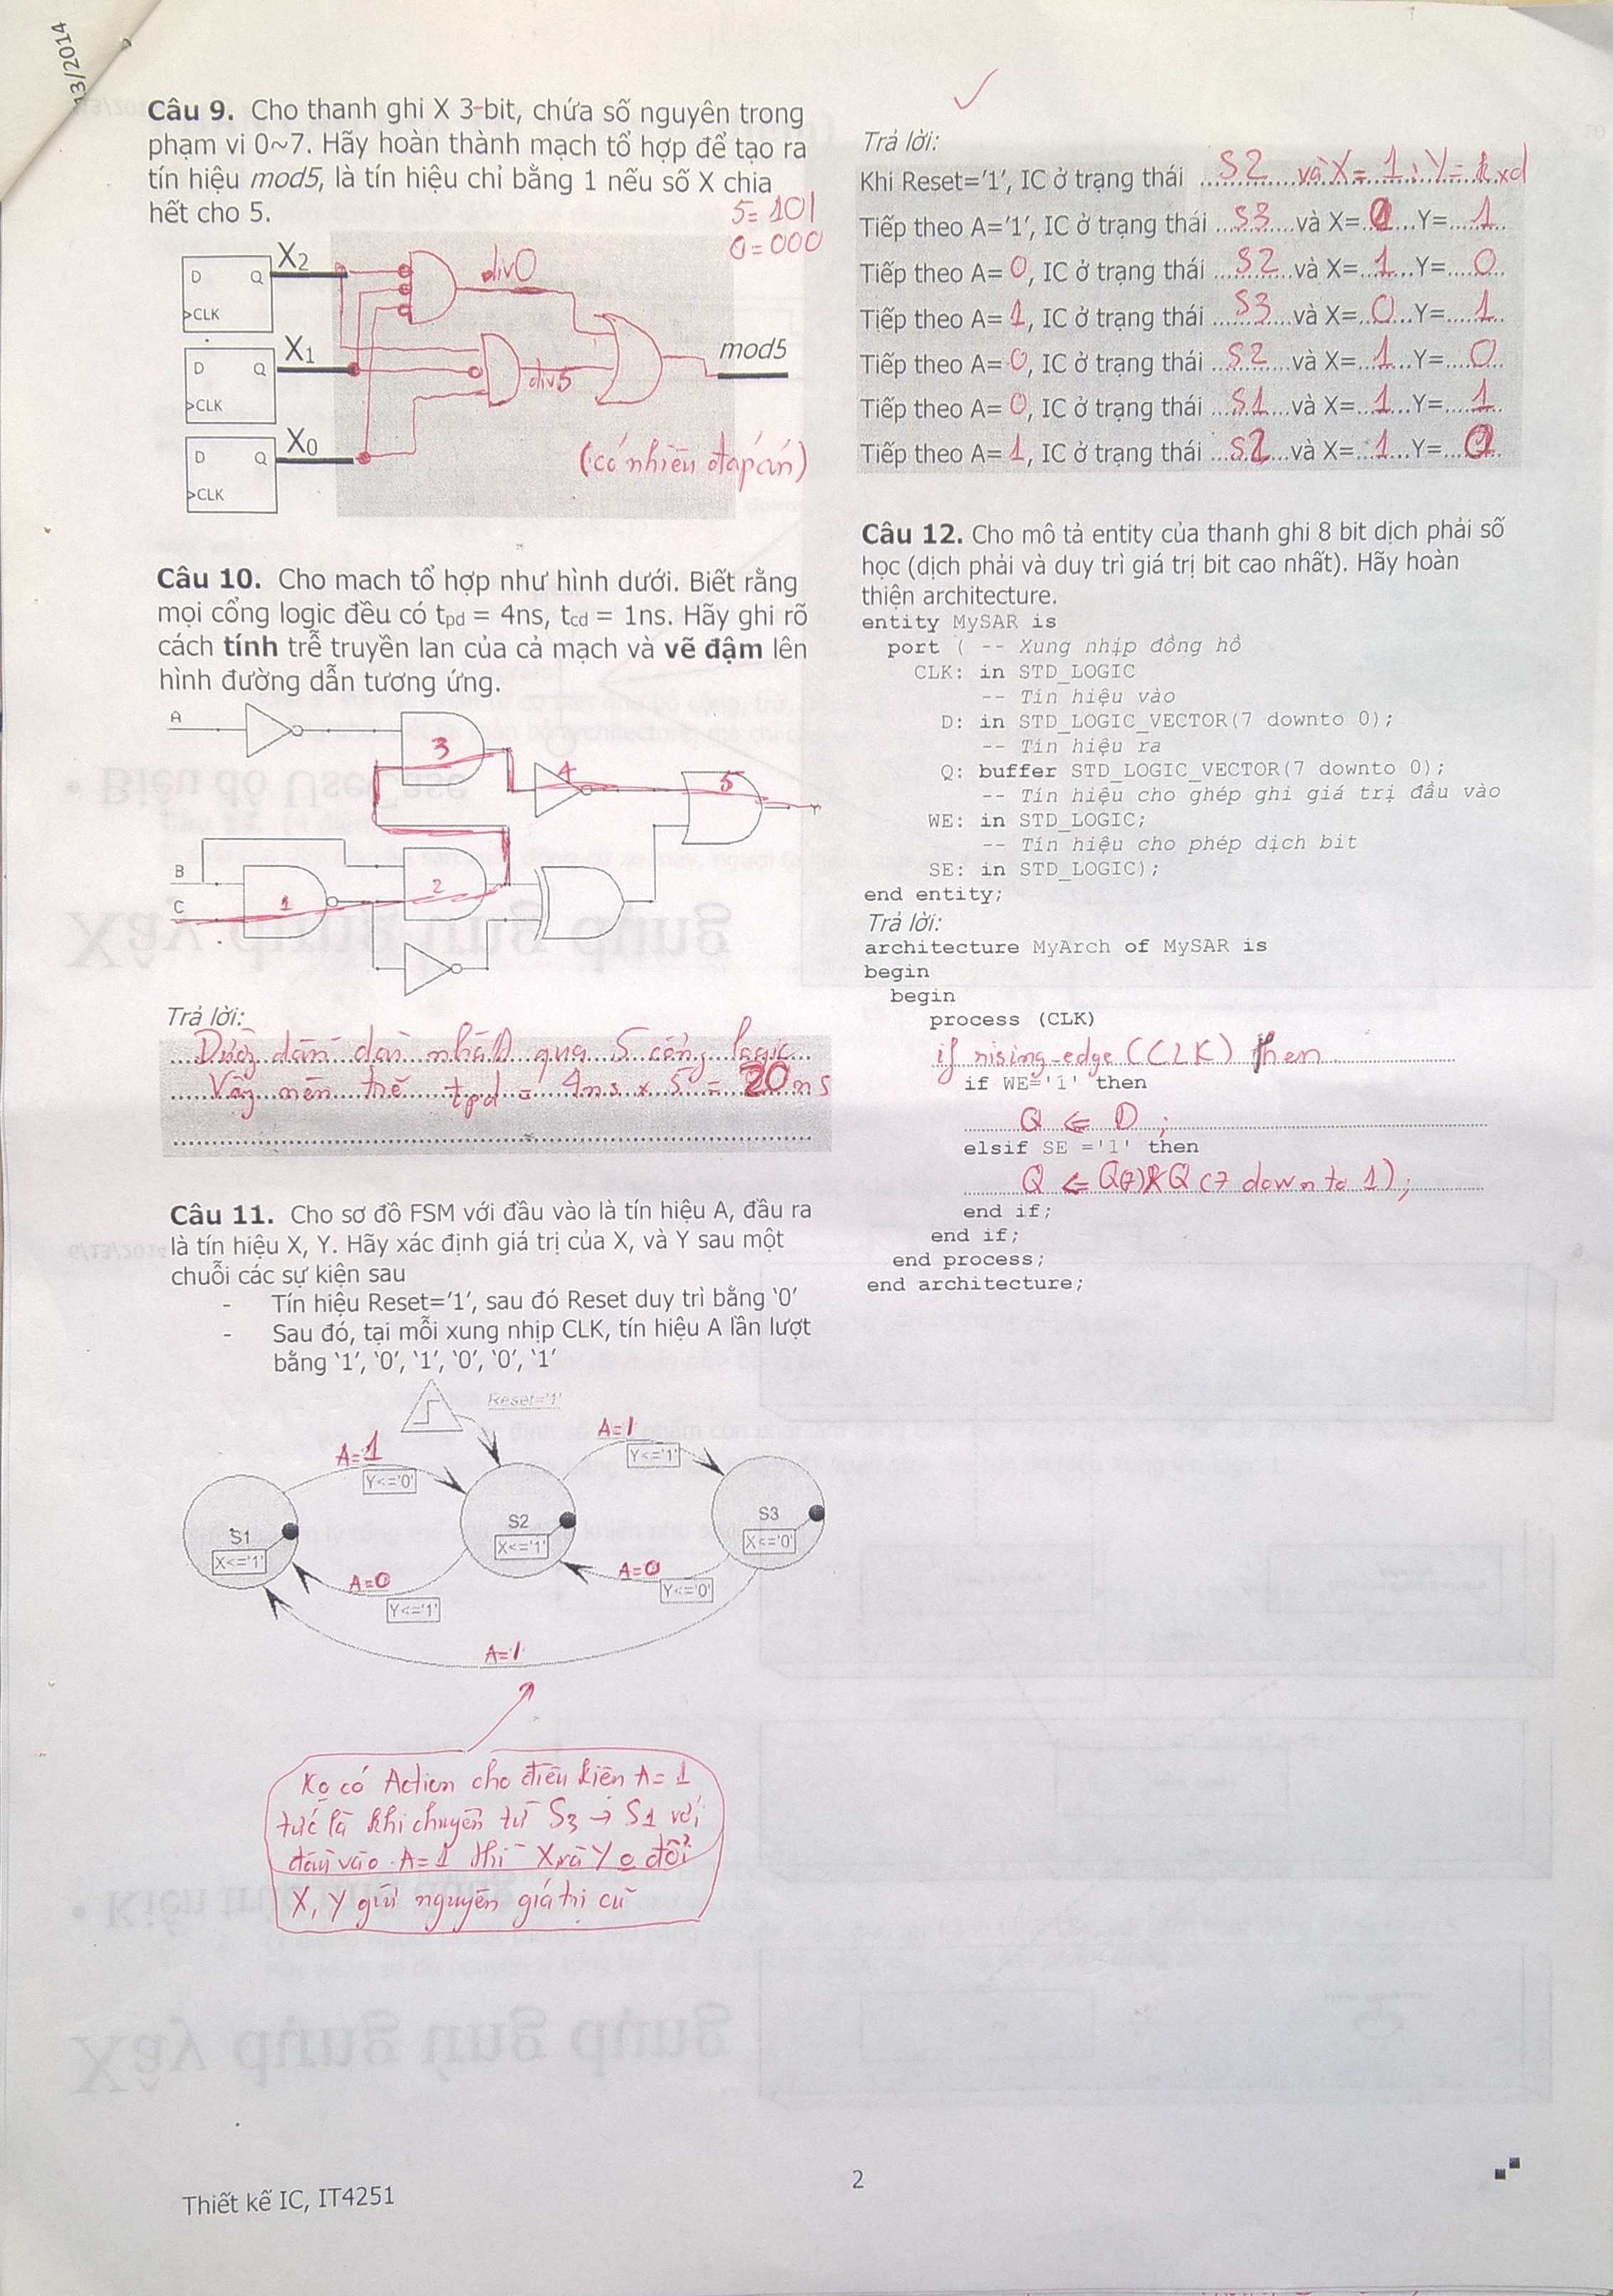 13/2014
Câu 9. Cho thanh ghi X 3-bit, chứa số nguyên trong
phạm vi 0~7. Hãy hoàn thành mạch tổ hợp để tạo ra
tín hiệu mod5, là tín hiệu chỉ bằng 1 nếu số X chia
hết cho 5.
5=101
0=000
X2
D Q
CLK
X1
D Q
CLK
X0
D Q
CLK
div0
div5
mod5
(có nhiều đáp án)
Câu 10. Cho mạch tổ hợp như hình dưới. Biết rằng
mọi cổng logic đều có tpd = 4ns, tcd = 1ns. Hãy ghi rõ
cách tính trễ truyền lan của cả mạch và vẽ đậm lên
hình đường dẫn tương ứng.
A
3
4
5
Y
B
C
1
2
Trả lời:
Đường dẫn dài nhất qua 5 cổng logic
Vậy nên trễ tpd = 4ns x 5 = 20ns
Câu 11. Cho sơ đồ FSM với đầu vào là tín hiệu A, đầu ra
là tín hiệu X, Y. Hãy xác định giá trị của X, và Y sau một
chuỗi các sự kiện sau
- Tín hiệu Reset='1', sau đó Reset duy trì bằng '0'
- Sau đó, tại mỗi xung nhịp CLK, tín hiệu A lần lượt
bằng '1', '0', '1', '0', '0', '1'
Reset='1'
A=1
Y<='0'
A=1
Y<='1'
S1
X<='1'
S2
X<='1'
S3
X<='0'
A=0
Y<='1'
A=0
Y<='0'
A=1
Ko có Action cho điều kiện A=1
tức là khi chuyển từ S3 → S1 với
đầu vào A=1 thì X và Y o đổi
X, Y giữ nguyên giá trị cũ
Trả lời:
Khi Reset='1', IC ở trạng thái S2 và X=1; Y=kxd
Tiếp theo A='1', IC ở trạng thái S3 và X=0 Y=1
Tiếp theo A= 0, IC ở trạng thái S2 và X=1 Y=0
Tiếp theo A= 1, IC ở trạng thái S3 và X=0 Y=1
Tiếp theo A= 0, IC ở trạng thái S2 và X=1 Y=0
Tiếp theo A= 0, IC ở trạng thái S1 và X=1 Y=1
Tiếp theo A= 1, IC ở trạng thái S2 và X=1 Y=0
Câu 12. Cho mô tả entity của thanh ghi 8 bit dịch phải số
học (dịch phải và duy trì giá trị bit cao nhất). Hãy hoàn
thiện architecture.
entity MySAR is
port ( -- Xung nhịp đồng hồ
CLK: in STD_LOGIC
-- Tín hiệu vào
D: in STD_LOGIC_VECTOR(7 downto 0);
-- Tín hiệu ra
Q: buffer STD_LOGIC_VECTOR(7 downto 0);
-- Tín hiệu cho ghép ghi giá trị đầu vào
WE: in STD_LOGIC;
-- Tín hiệu cho phép dịch bit
SE: in STD_LOGIC);
end entity;
Trả lời:
architecture MyArch of MySAR is
begin
begin
process (CLK)
if rising-edge (CLK) then
if WE='1' then
Q <= D ;
elsif SE ='1' then
Q <= Q(7)&Q(7 downto 1);
end if;
end if;
end process;
end architecture;
Thiết kế IC, IT4251
2